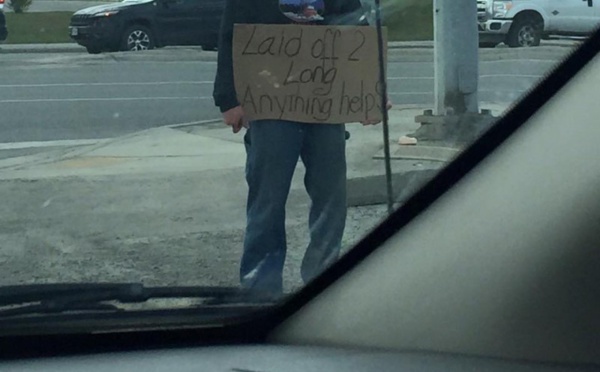 Laid off 2
Long
Anything helps